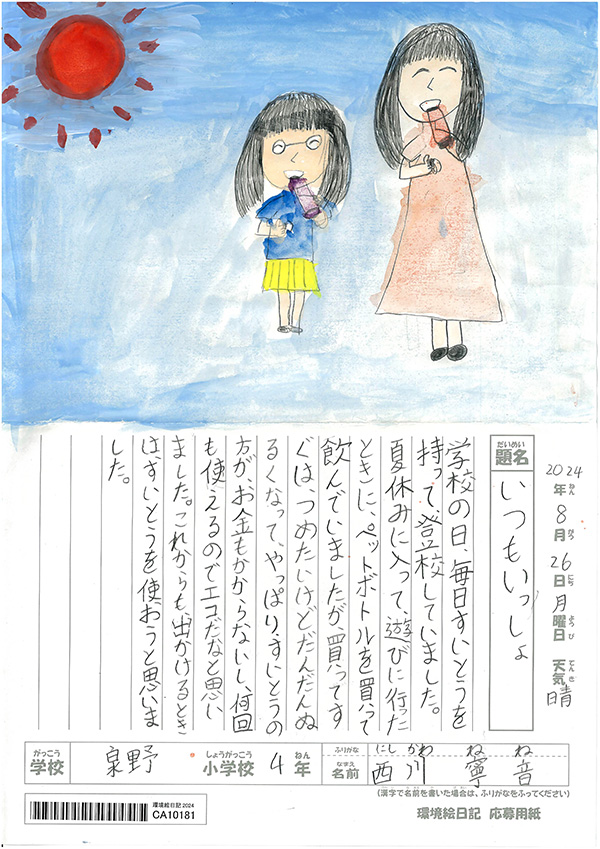 2024年8月26日月曜日 天気晴
ねん がつ にち ようび てんき
だいめい
題名
いつもいっしょ
学校の日、毎日すいとうを
持って、登校していました。
夏休みに入って、遊びに行った
ときに、ペットボトルを買って
飲んでいましたが、買ってす
ぐは、つめたいけどだんだんぬ
るくなって、やっぱり、すいとうの
方が、お金もかからないし、何回
も使えるのでエコだなと思い
ました。これからも、出かけるとき
は、すいとうを使おうと思いま
した。
がっこう しょうがっこう ねん
学校 泉野 小学校 4年
ふりがな にし かわ ね ね
なまえ
名前 西川 寧音
(漢字で名前を書いた場合は、ふりがなをふってください)
環境絵日記2024
CA10181
環境絵日記 応募用紙